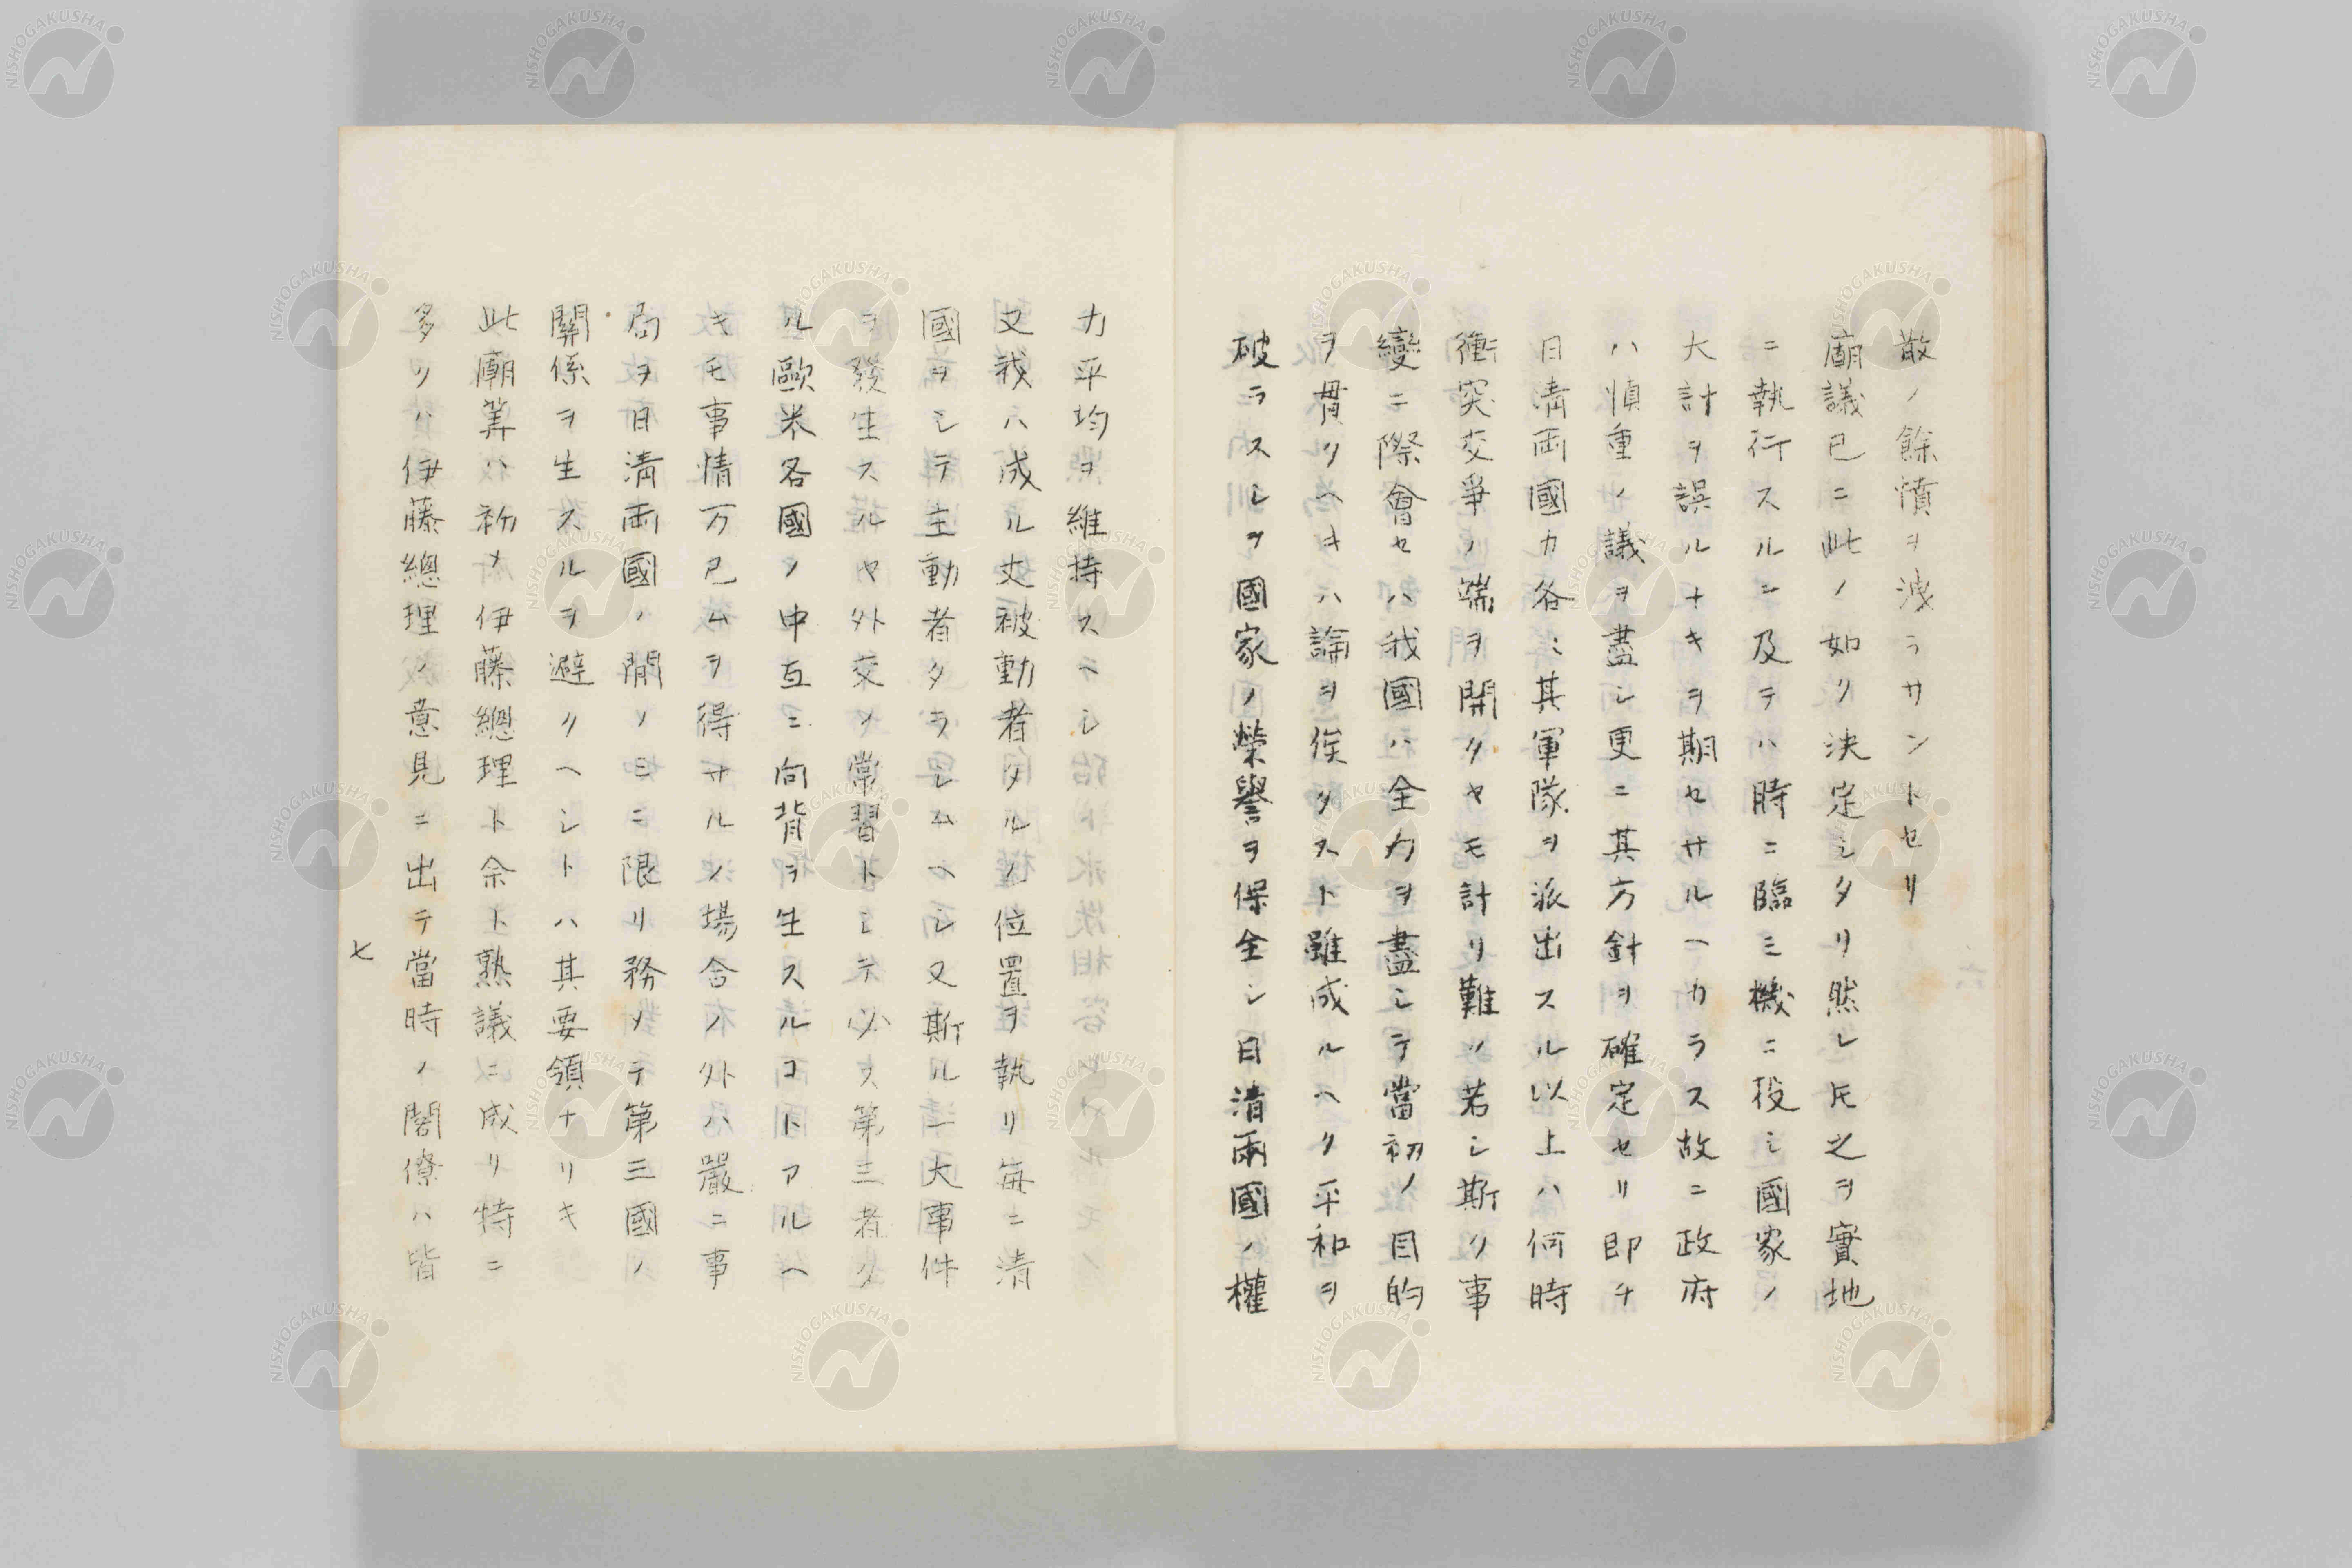 散ノ餘憤ヲ洩ラサントセリ
廟議已ニ此ノ如ク決定シタリ然レ𪜈之ヲ實地
ニ執行スルニ及テハ時ニ臨ミ機ニ投シ國家ノ
大計ヲ誤ルナキヲ期セサルヘカラス故ニ政府
ハ愼重ノ議ヲ盡シ更ニ其方針ヲ確定セリ即チ
日淸兩國カ各〻其軍隊ヲ派出スル以上ハ何時
衝突交爭ノ端ヲ開クヤモ計リ難ツ若シ斯ク事
變ニ際會セハ我國ハ全力ヲ盡シテ當初ノ目的
ヲ貫クヘキハ論ヲ俟タスト雖成ルヘク平和ヲ
破ラスシテ國家ノ榮譽ヲ保全シ日清兩國ノ權
力平均ヲ維持スヘシ
又我ハ成ル丈被動者タルノ位置ヲ執リ每ニ清
國ヲシテ主動者タラシムヘシ又斯ル一大事件
ヲ發生スルヤ外交ノ常習トシテ必ス第三者タ
ル歐米各國ノ中互ニ向背ヲ生スルコトアルヘ
キモ事情万已ムヲ得サルノ場合ノ外ハ嚴ニ事
局ヲ日淸兩國ノ間ノミニ限リ務メテ第三國ノ
關係ヲ生スルヲ避クヘシトハ其要領ナリキ
此廟筭ハ初メ伊藤總理ト余ト熟議ニ成リ特ニ
多クハ伊藤總理ノ意見ニ出テ當時ノ閣僚ハ皆
七
NISHOGAKUSHA